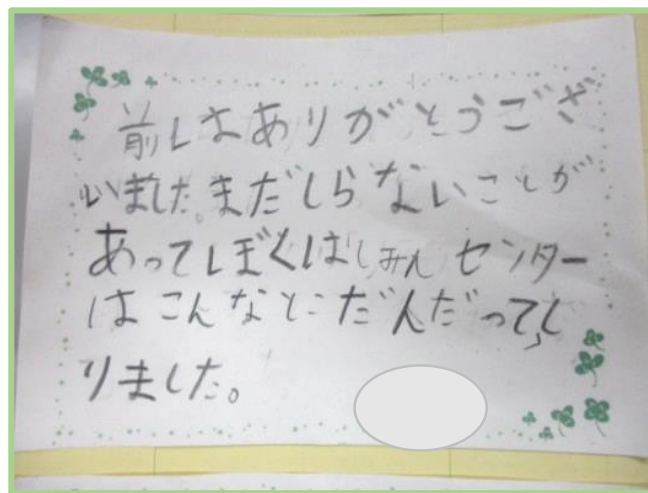 前はありがとうござ
いました。まだしらないことが
あってぼくはしみんセンター
はこんなとこだんだってし
りました。